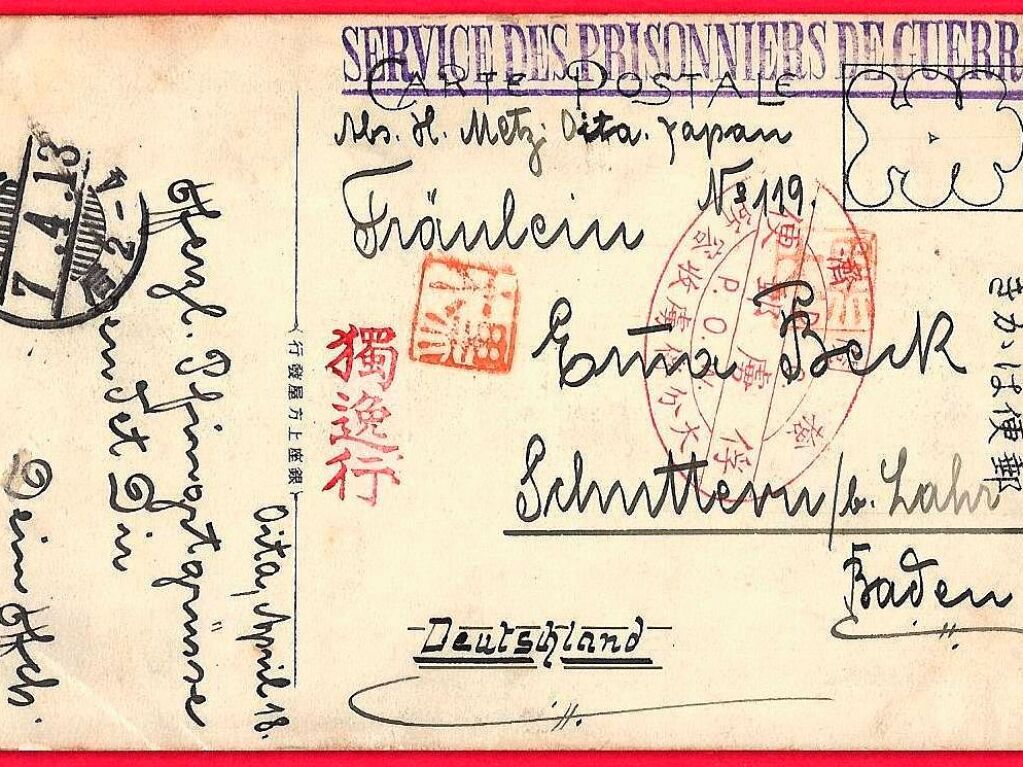 SERVICE DES PRISONNIERS DE GUERR
CARTE POSTALE
Abs. H. Metz, Oita. Japan
No 119.
Fräulein
Erna Beck
Schuttern/b. Lahr
Baden
Deutschland
獨逸行
P. O. W.
大分俘虜收容所
俘虜郵便
きかは便郵
行發屋方上座銀
7.4.13
Oita, April 18.
Herzl. Pfingstgrüsse
sendet Dir
Dein